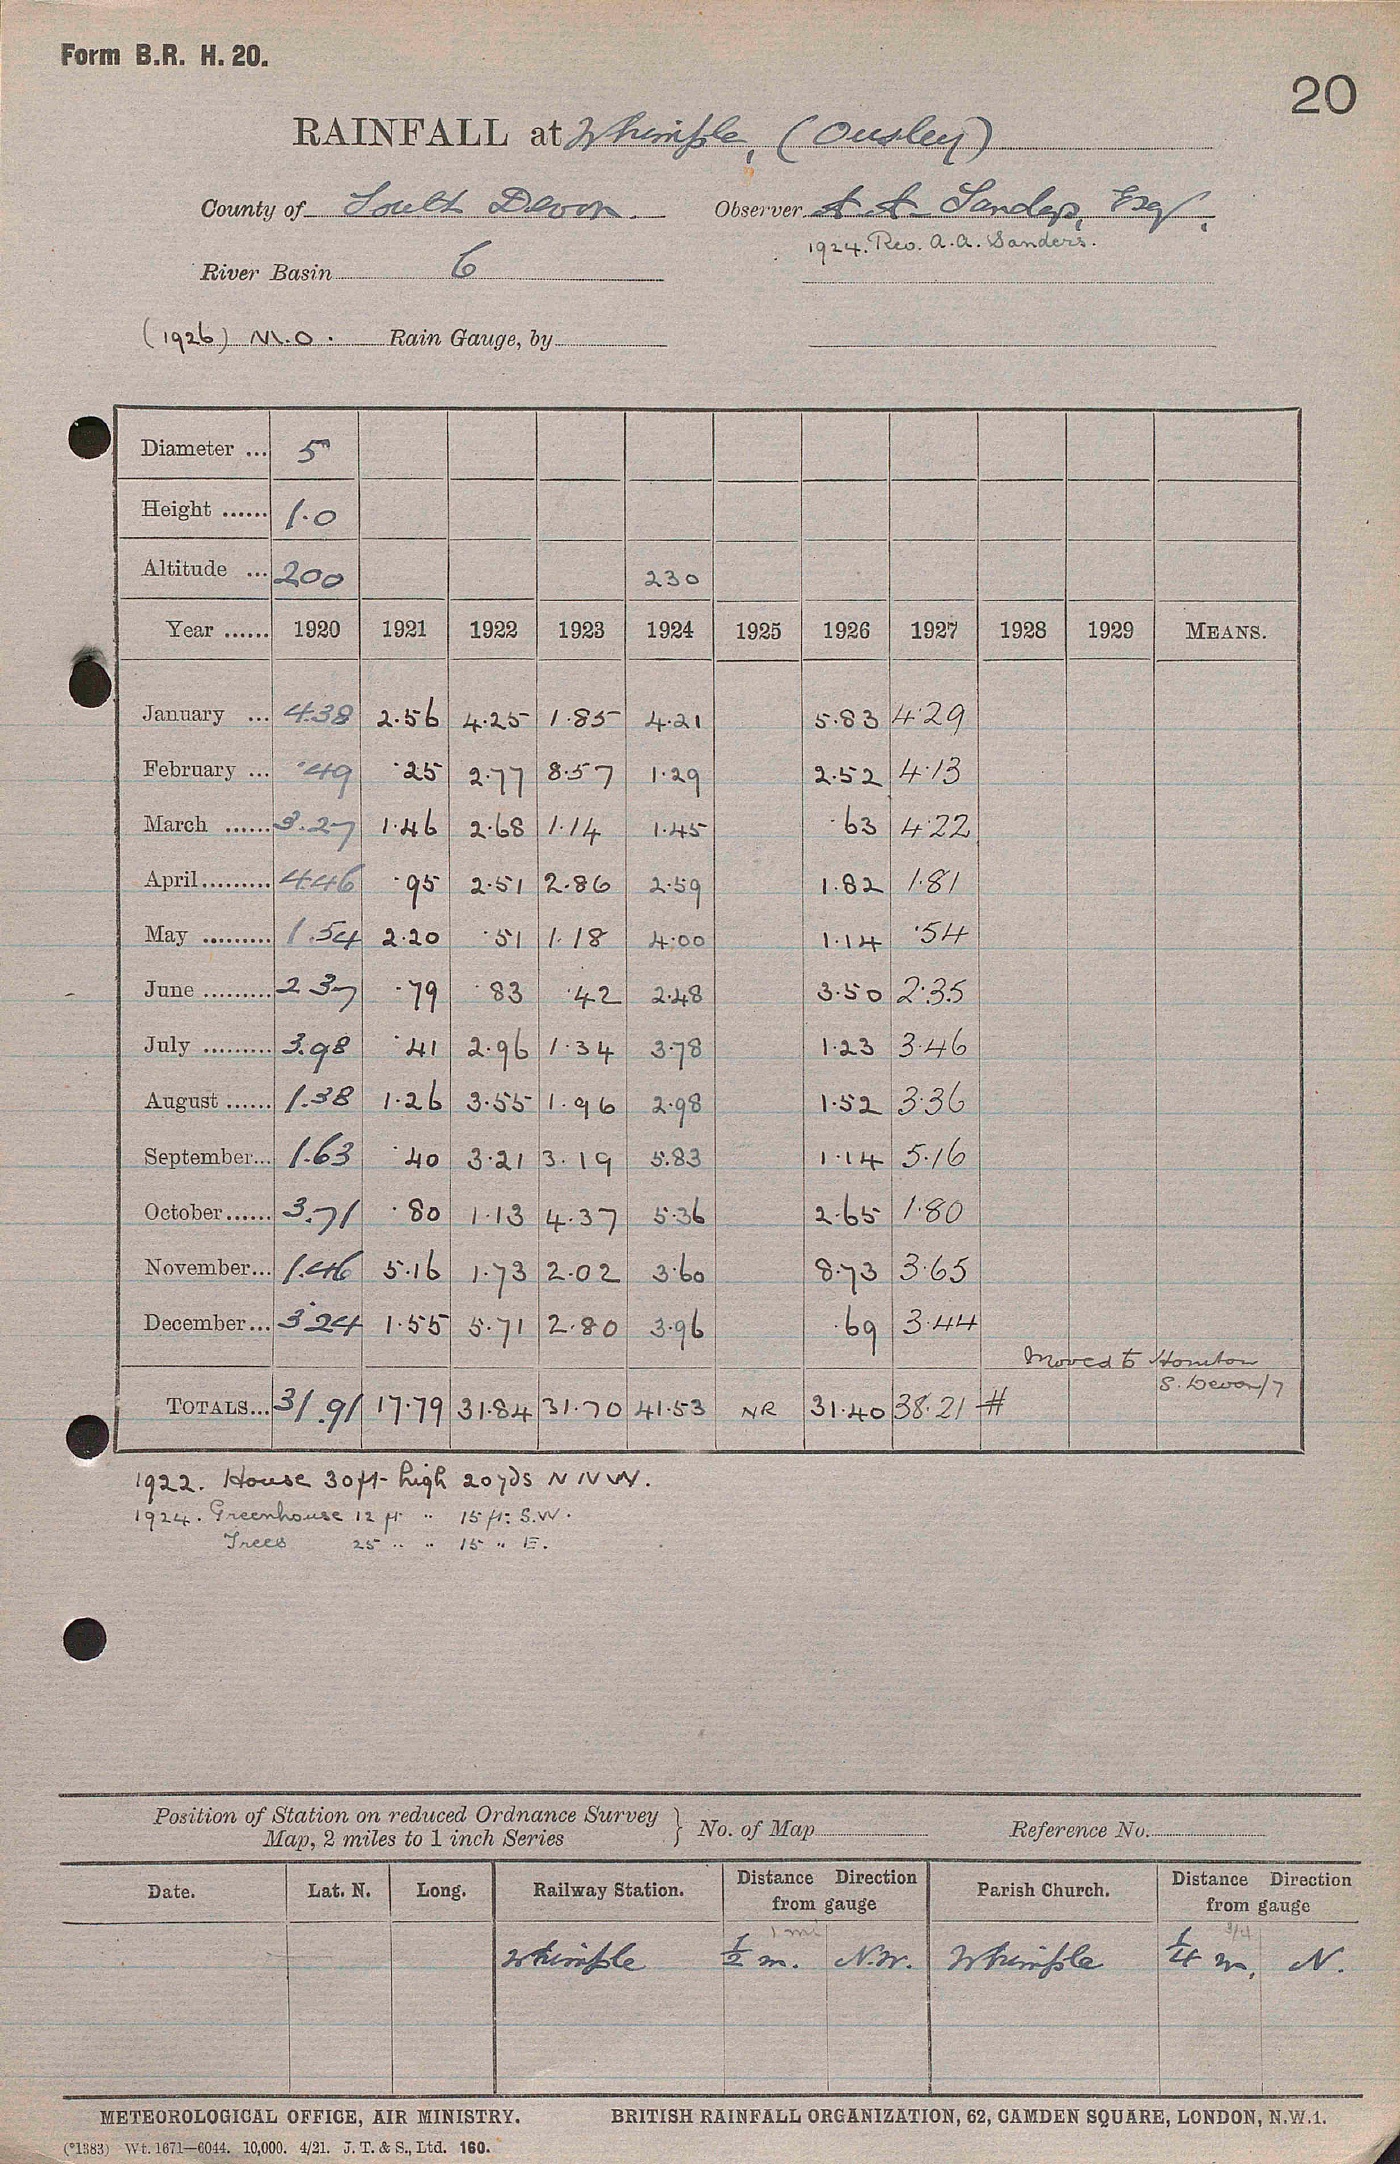 Form B.R. H. 20.
20
RAINFALL at Whimple, (Ousley)
County of South Devon. Observer A. A. Sanders, Esq.
1924. Rev. A. A. Sanders.
River Basin 6
(1926) M.O. Rain Gauge, by
Diameter ... 5
Height ...... 1.0
Altitude ... 200 230
Year ...... 1920 1921 1922 1923 1924 1925 1926 1927 1928 1929 MEANS.
January ... 4.38 2.56 4.25 1.85 4.21 5.83 4.29
February ... .49 .25 2.77 8.57 1.29 2.52 4.13
March ...... 3.27 1.46 2.68 1.14 1.45 .63 4.22
April ......... 4.46 .95 2.51 2.86 2.59 1.82 1.81
May ......... 1.54 2.20 .51 1.18 4.00 1.14 .54
June ......... 2.37 .79 .83 .42 2.48 3.50 2.35
July ......... 3.98 .41 2.96 1.34 3.78 1.23 3.46
August ...... 1.38 1.26 3.55 1.96 2.98 1.52 3.36
September... 1.63 .40 3.21 3.19 5.83 1.14 5.16
October...... 3.71 .80 1.13 4.37 5.36 2.65 1.80
November... 1.46 5.16 1.73 2.02 3.60 8.73 3.65
December... 3.24 1.55 5.71 2.80 3.96 .69 3.44
Moved to Honiton
S. Devon/7
TOTALS... 31.91 17.79 31.84 31.70 41.53 NR 31.40 38.21 #
1922. House 30 ft. high 20 yds N N W.
1924. Greenhouse 12 ft " 15 ft. S.W.
Trees 25 " " 15 " E.
Position of Station on reduced Ordnance Survey
Map, 2 miles to 1 inch Series } No. of Map Reference No.
Date. Lat. N. Long. Railway Station. Distance Direction from gauge Parish Church. Distance Direction from gauge
1 mi 3/4
Whimple 1/2 m. N.W. Whimple 1/4 m. N.
METEOROLOGICAL OFFICE, AIR MINISTRY. BRITISH RAINFALL ORGANIZATION, 62, CAMDEN SQUARE, LONDON, N.W.1.
(*1383) Wt. 1671—6044. 10,000. 4/21. J. T. & S., Ltd. 160.